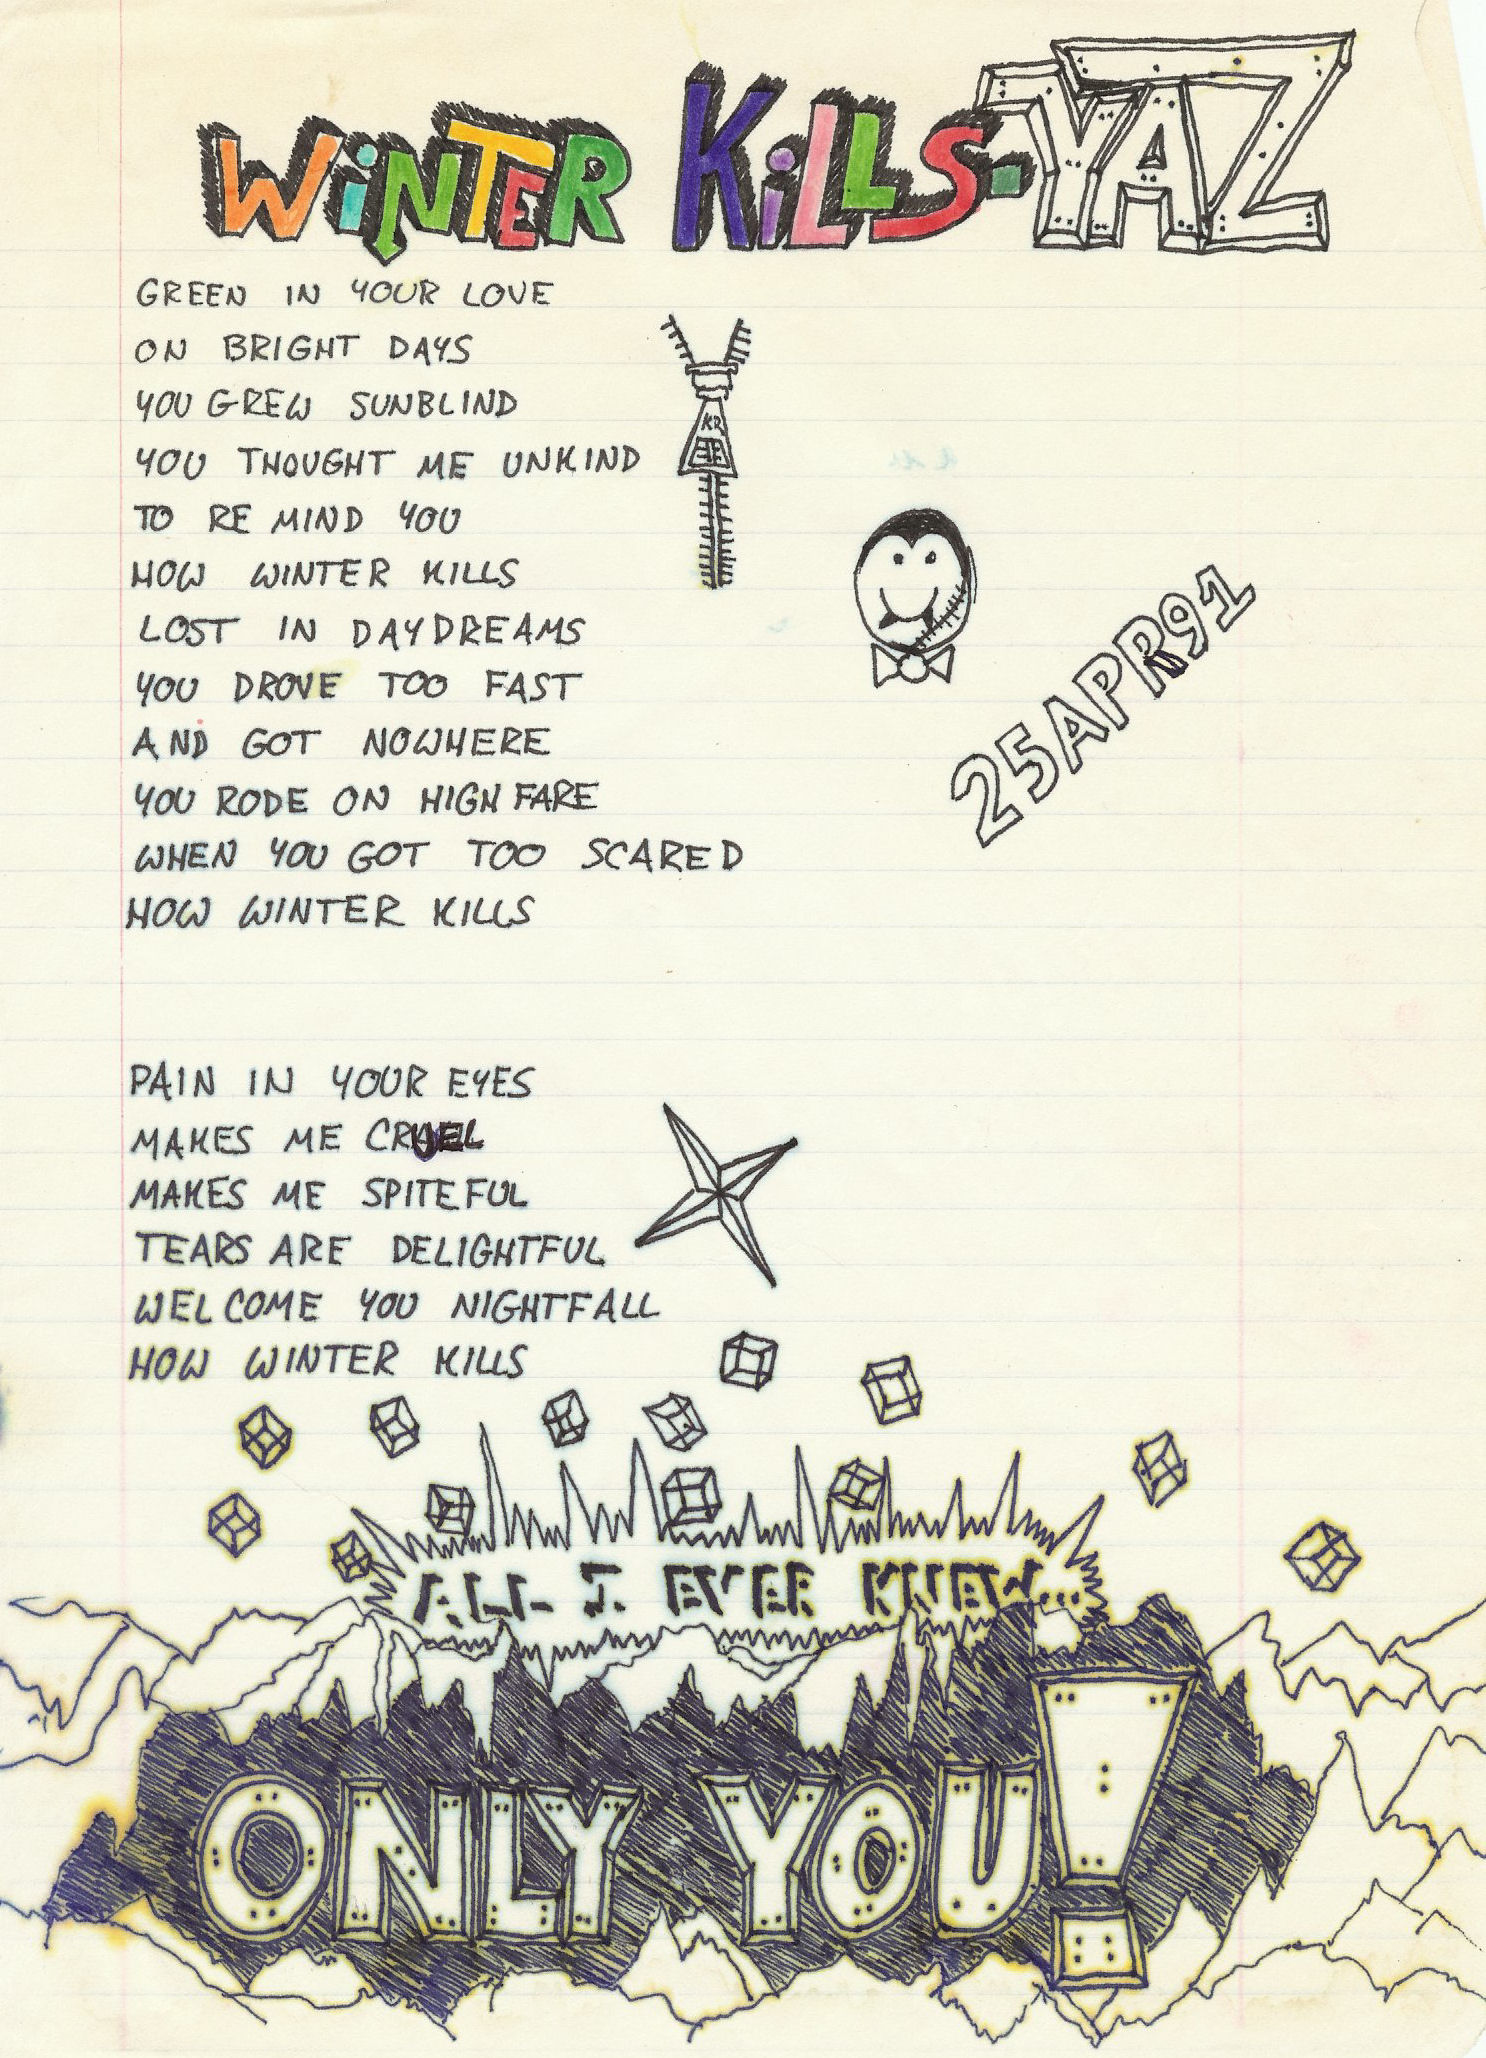 WiNTER KiLLS-YAZ
GREEN IN YOUR LOVE
ON BRIGHT DAYS
YOU GREW SUNBLIND
YOU THOUGHT ME UNKIND
TO RE MIND YOU
HOW WINTER KILLS
LOST IN DAYDREAMS
YOU DROVE TOO FAST
AND GOT NOWHERE
YOU RODE ON HIGH FARE
WHEN YOU GOT TOO SCARED
HOW WINTER KILLS
KR
25APR91
PAIN IN YOUR EYES
MAKES ME CRUEL
MAKES ME SPITEFUL
TEARS ARE DELIGHTFUL
WELCOME YOU NIGHTFALL
HOW WINTER KILLS
ALL I EVER KNEW...
ONLY YOU!